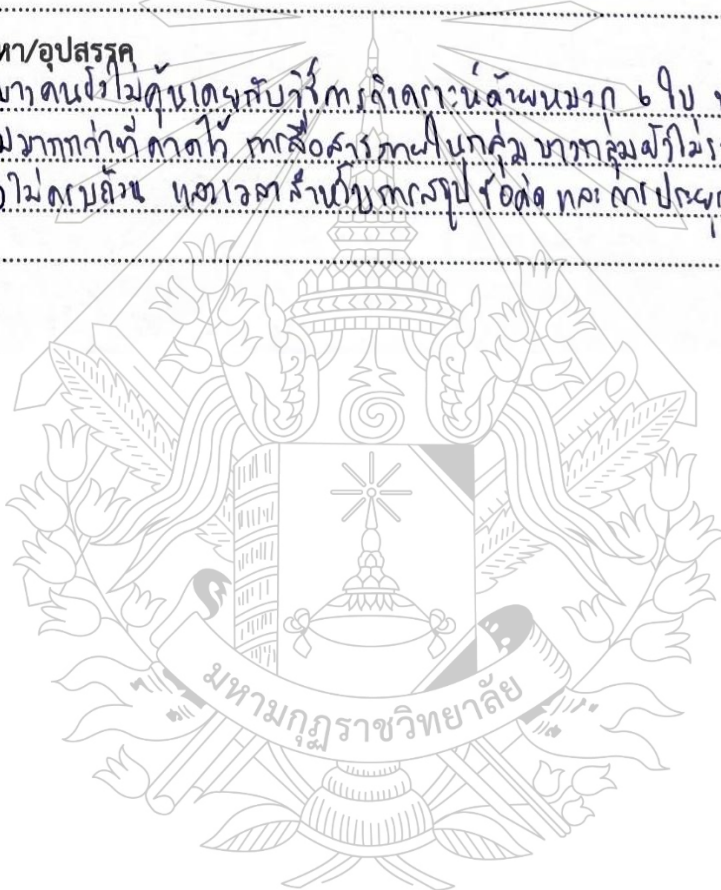 หา/อุปสรรค
บางคนยังไม่คุ้นเคยกับวิธีการวิเคราะห์ด้วยหมวก 6 ใบ
มากกว่าที่คาดไว้ การสื่อสารภายในกลุ่ม บางกลุ่มยังไม่
ไม่ครบถ้วน และเวลาสำหรับการสรุปข้อคิด และการประยุ
มหามกุฏราชวิทยาลัย